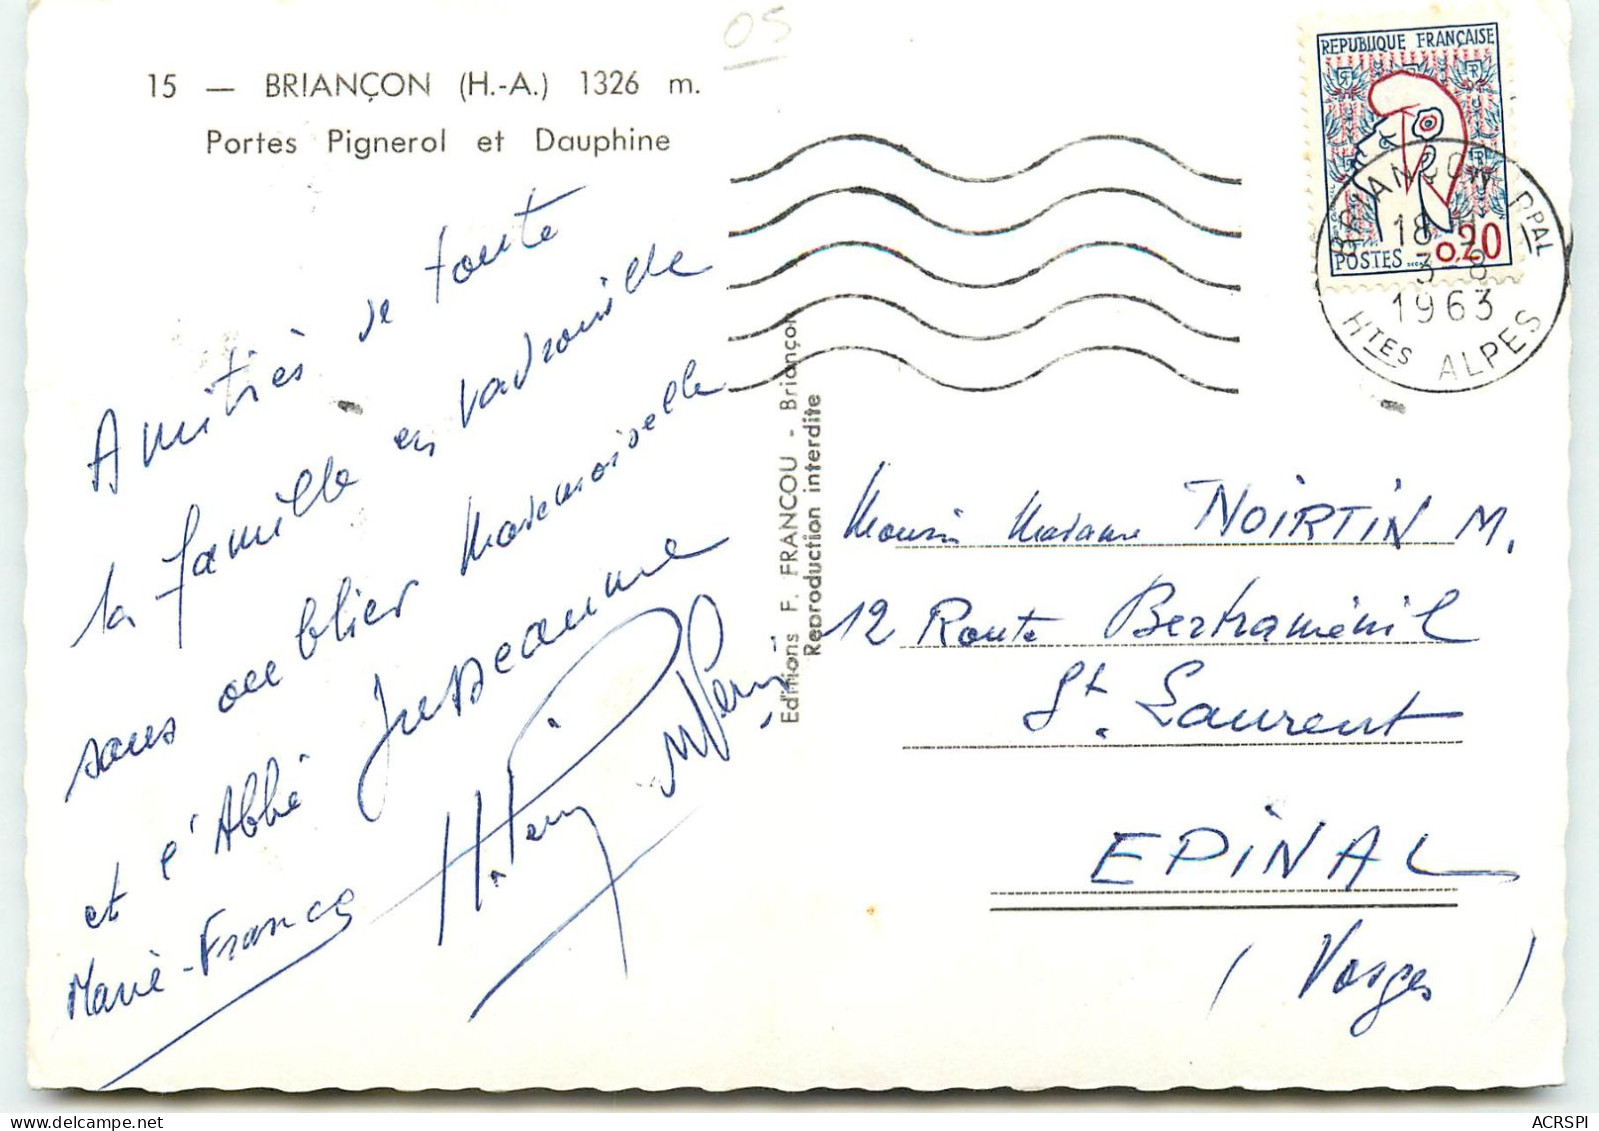 05
15 — BRIANÇON (H.-A.) 1326 m.
Portes Pignerol et Dauphine
Amitiés de toute
la famille en vadrouille
sans oublier Mademoiselle
et l'Abbé Jusdeaume
Marie-France
H. Perry
REPUBLIQUE FRANÇAISE
POSTES 0,20
BRIANÇON PPAL
18 H
3-8
1963
HTES ALPES
Editions F. FRANCOU - Briançon
Reproduction interdite
Madame NOIRTIN M.
12 Route Bertraménil
St. Laurent
EPINAL
(Vosges)
ACRSPI